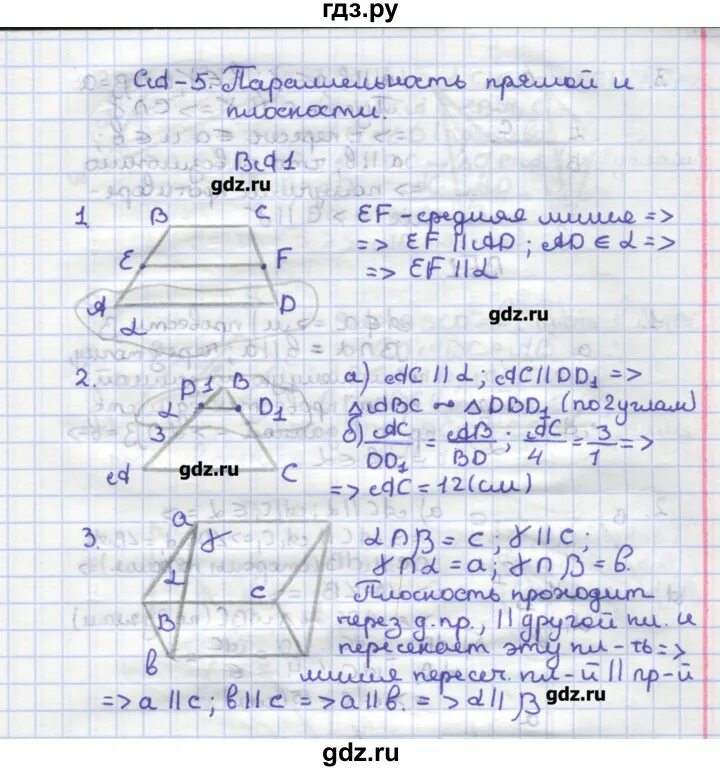 гдз.ру
СА-5. Параллельность прямой и
плоскости.
ВА1
gdz.ru
1 B C EF-средняя линия =>
E F => EF || AD ; AD ∈ α =>
A D => EF || α
α gdz.ru
2. D 1 B а) AC || α ; AC || DD₁ =>
α D₁ △ABC ~ △DBD₁ (по 2 углам)
3 б) AC/DD₁ = AB/BD ; AC/4 = 3/1 =>
A gdz.ru C => AC = 12 (см)
3. a γ α ∩ β = c ; γ || c ;
α γ ∩ α = a ; γ ∩ β = b.
c Плоскость проходит
β через д. пр., || другой пл. и
b пересекает эту пл-ть =>
линия пересеч. пл-й || пр-й
=> a || c ; b || c => a || b. => α || β
gdz.ru
gdz.ru